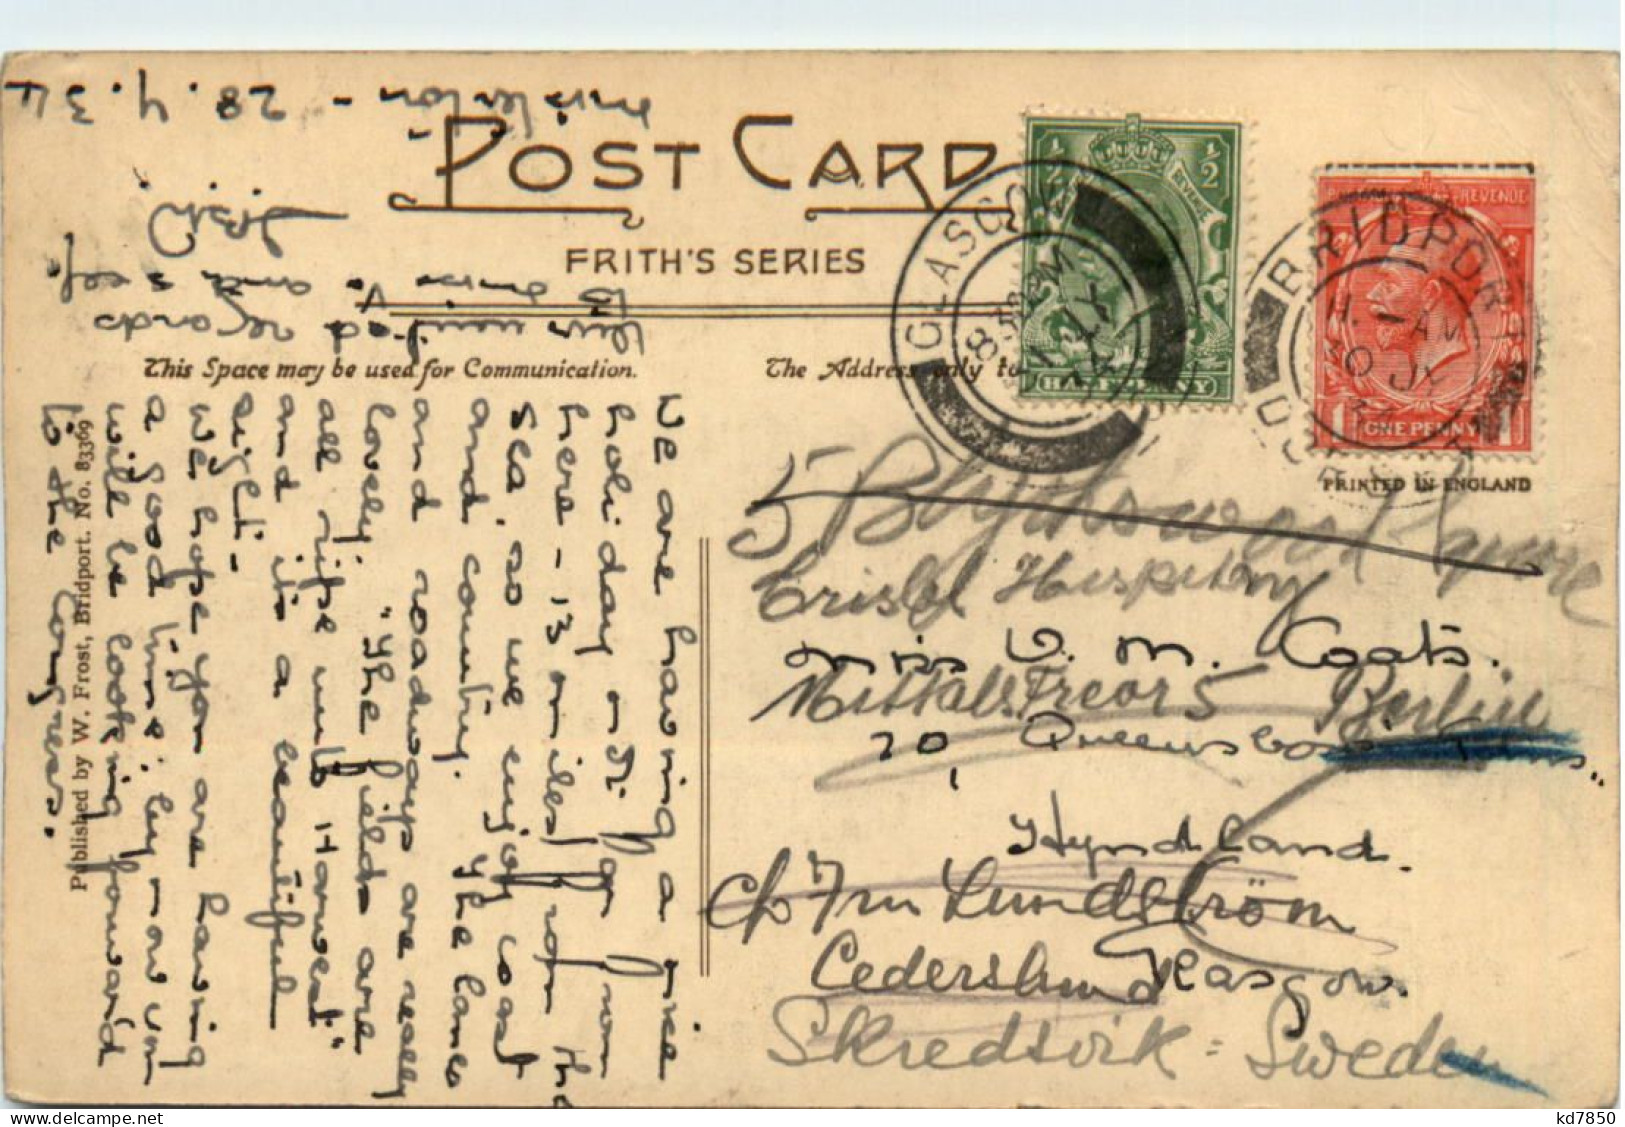 POST CARD
FRITH'S SERIES
This Space may be used for Communication.
The Address only to
PRINTED IN ENGLAND
Published by W. Frost, Bridport. No. 83369
GLASGOW
BRIDPORT
REVENUE
HALFPENNY
ONE PENNY
28.7.34
We are having a nice
holiday
here – 13 miles from the
sea, so we enjoy coast
and country. The lanes
and roadways are really
lovely. "The fields are
all ripe with Harvest"
and its a beautiful
sight –
We hope you are having
a good time: by now you
will be looking forward
to the Congress.
regards
5 Blythswood Square
Miss V. M. Coats.
Berlin
20, Queensboro
Hyndland.
c/o Lundström
Glasgow.
Cederslund
Skredsvik = Sweden
kd7850